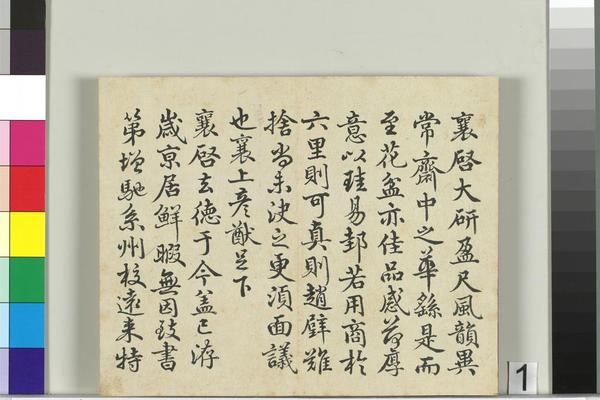 襄啓大研盈尺風韻異
常齋中之華繇是而
至花盆亦佳品感荷厚
意以珪易邽若用商於
六里則可真則趙璧難
捨尚未決之更須面議
也襄上彥猷足下
襄啓去德于今蓋已洊
歲京居鮮暇無因致書
第增馳系州校遠來特
1